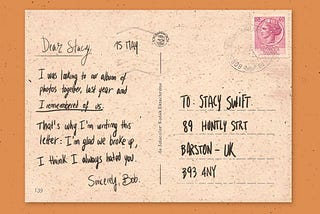 Dear Stacy,
15 MAY
I was looking to our album of
photos together, last year and
I remembered of us.
That's why I'm writing this
letter: I'm glad we broke up,
I think I always hated you.
Sincerely, Bob.
139
TO: STACY SWIFT
89 HUNTLY STRT
BARSTON - UK
393 4NY